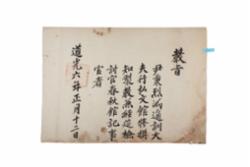 敎旨
尹秉烈爲通訓大
夫行弘文館修撰
知製敎兼經筵檢
討官春秋館記事
官者
道光六年正月十二日